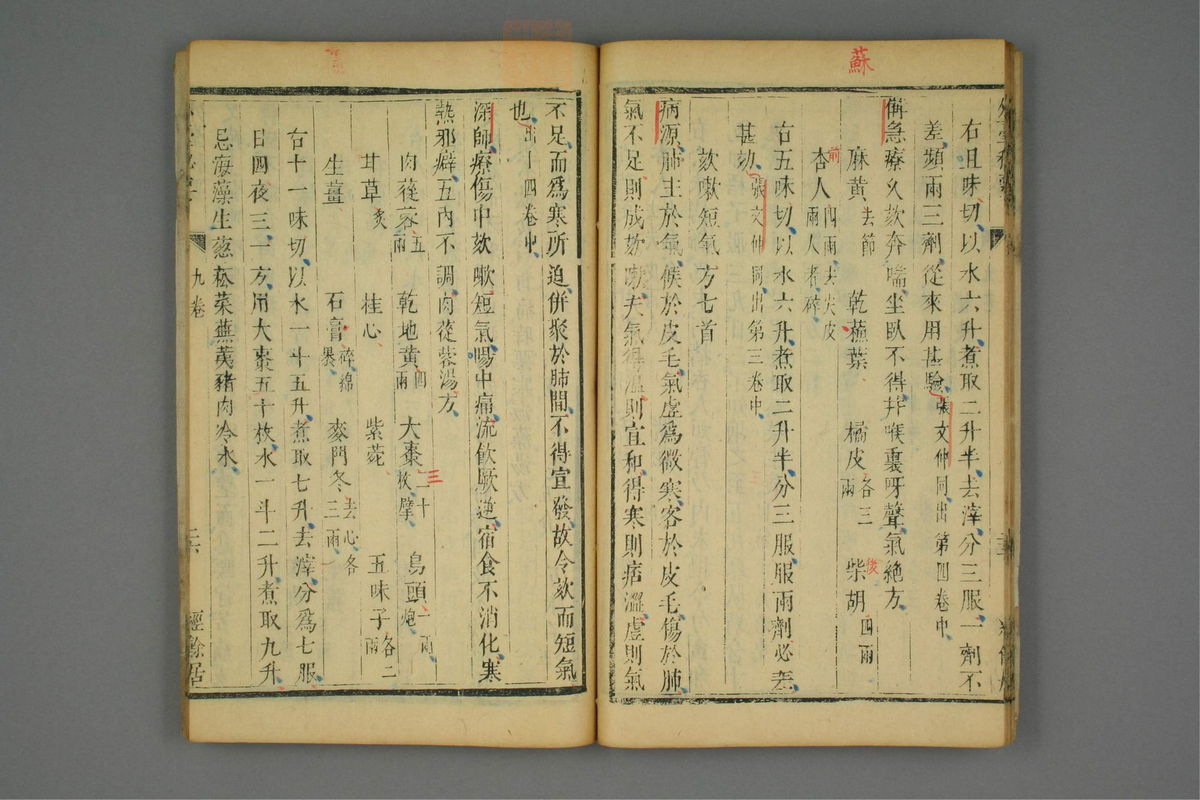 蘇
右五味切以水六升煮取二升半去滓分三服一劑不
差頻兩三劑從來用甚驗張文仲同出第四卷中
備急療久欬奔喘坐臥不得并喉裏呀聲氣絕方
麻黃去節 乾蘇葉 橘皮各三兩 柴胡四兩
杏人四兩去尖皮兩人者碎
前 後
右五味切以水六升煮取二升半分三服服兩劑必差
甚効張文仲同出第三卷中
欬嗽短氣方七首
病源肺主於氣候於皮毛氣虛爲微寒客於皮毛傷於肺
氣不足則成欬嗽夫氣得溫則宣和得寒則痞澀虛則氣
不足而爲寒所迫併聚於肺間不得宣發故令欬而短氣
也出十四卷中
深師療傷中欬嗽短氣腸中痛流飲厥逆宿食不消化寒
熱邪癖五內不調肉蓯蓉湯方
肉蓯蓉五兩 乾地黃四兩 大棗二十枚擘 烏頭一兩炮
三
甘草炙 桂心 紫菀 五味子各二兩
生薑 石膏碎綿裹 麥門冬去心各三兩
右十一味切以水一斗五升煮取七升去滓分爲七服
日四夜三一方用大棗五十枚水一斗二升煮取九升
忌海藻生葱菘菜蕪荑豬肉冷水
九卷 經餘居